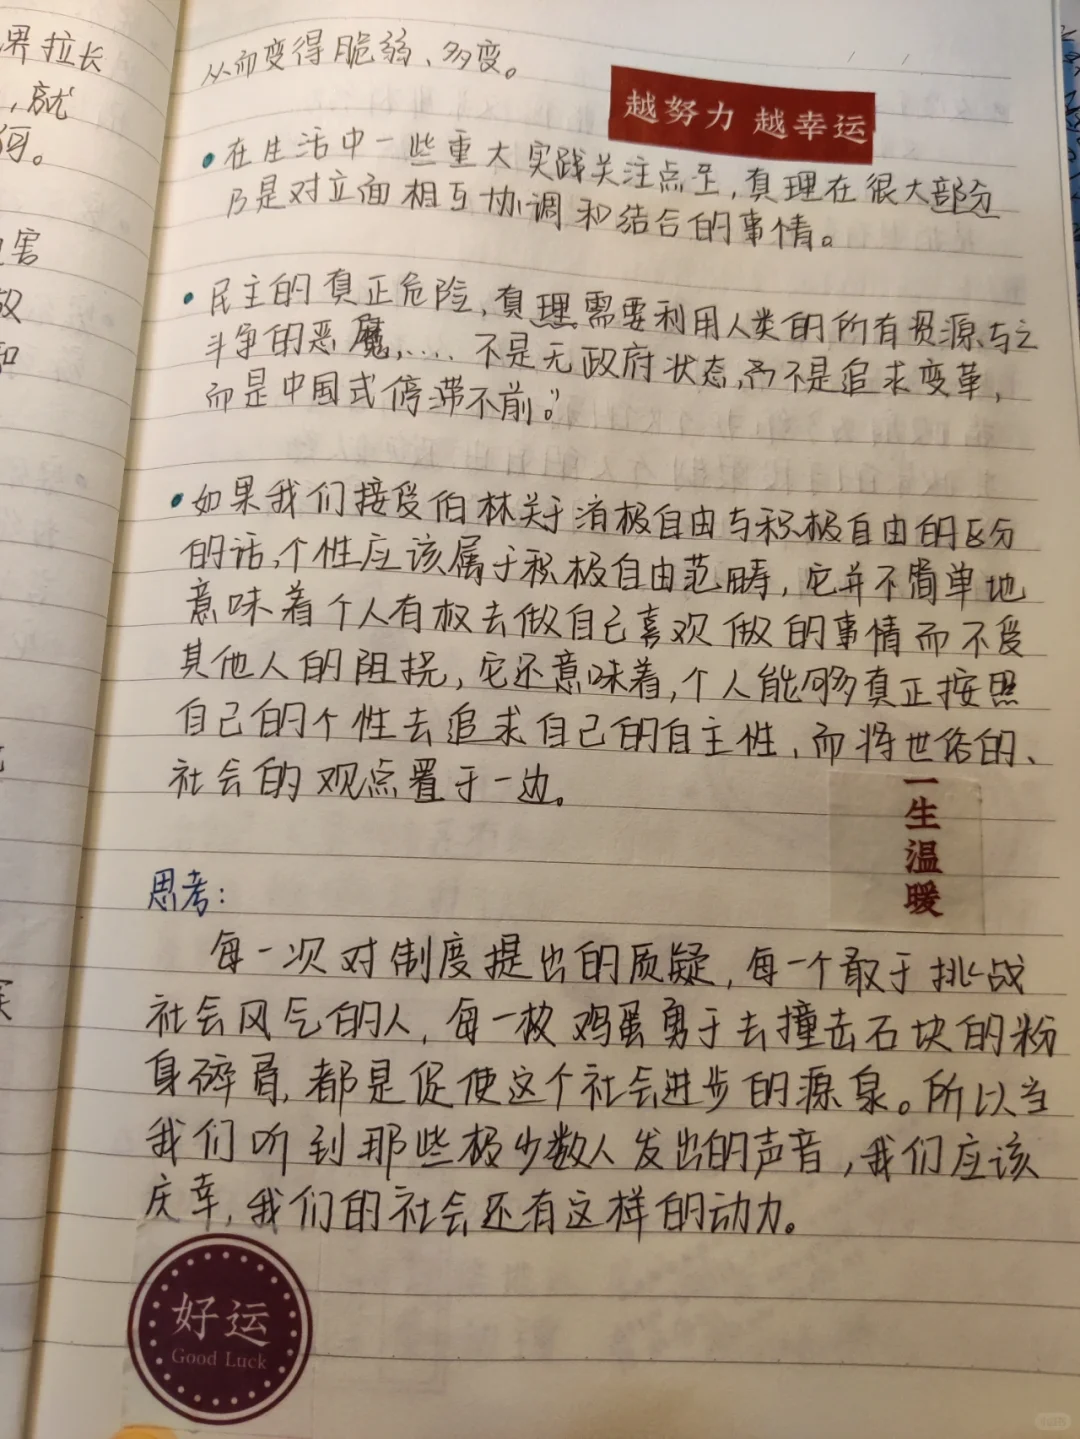 界拉长
，就
何。
害
和
从而变得脆弱、多变。
越努力 越幸运
•在生活中一些重大实践关注点上，真理在很大部分
乃是对立面相互协调和结合的事情。
•民主的真正危险，真理需要利用人类的所有资源与之
斗争的恶魔，....不是无政府状态，而不是追求变革，
而是中国式停滞不前。"
•如果我们接受伯林关于消极自由与积极自由的区分
的话，个性应该属于积极自由范畴，它并不简单地
意味着个人有权去做自己喜欢做的事情而不受
其他人的阻拦，它还意味着，个人能够真正按照
自己的个性去追求自己的自主性，而将世俗的、
社会的观点置于一边。
一生温暖
思考：
每一次对制度提出的质疑，每一个敢于挑战
社会风气的人，每一枚鸡蛋勇于去撞击石块的粉
身碎骨，都是促使这个社会进步的源泉。所以当
我们听到那些极少数人发出的声音，我们应该
庆幸，我们的社会还有这样的动力。
好运
Good Luck